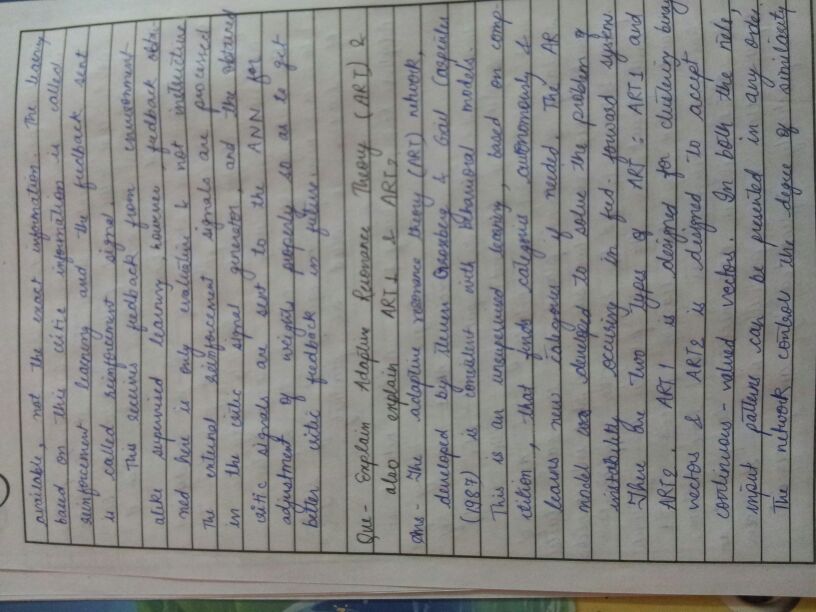 available, not the exact information. The learning
based on this critic information is called
reinforcement learning and the feedback sent
is called reinforcement signal.
This receives feedback from environment
alike supervised learning however, feedback obtai
ned here is only evaluative & not instructive
The external reinforcement signals are processed
in the critic signal generator, and the obtained
critic signals are sent to the ANN for
adjustment of weights properly so as to get
better critic feedback in future.
Que- Explain Adaptive Resonance Theory (ART) &
also explain ART1 & ART2
Ans- The adaptive resonance theory (ART) network,
developed by Steven Grossberg & Gail Carpenter
(1987) is consistent with behavioral models.
This is an unsupervised learning, based on comp-
etition, that finds categories autonomously &
learns new categories if needed. The AR
model was developed to solve the problem of
instability occuring in feed-forward system
There are two types of ART: ART1 and
ART2. ART1 is designed for clustering binary
vectors & ART2 is designed to accept
continuous-valued vectors. In both the nets,
input patterns can be presented in any order.
The network controls the degree of similarity